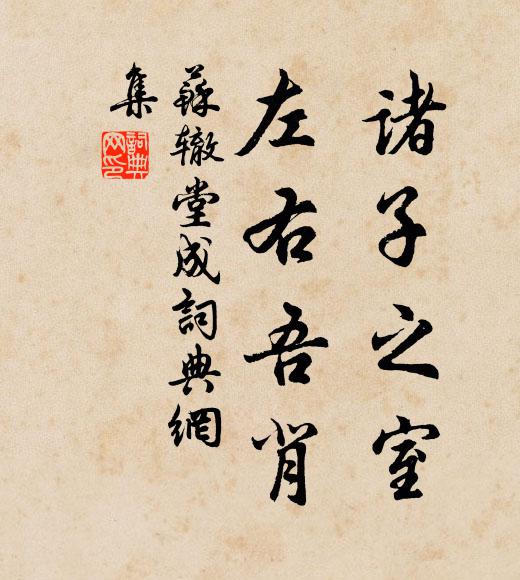 诸子之室
左右吾背
蘇辙堂成詞典網
集
詞典
网印